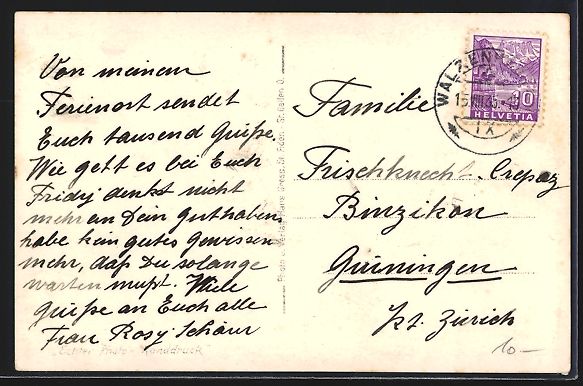 Von meinem
Ferienort sendet
Euch tausend Grüße.
Wie geht es bei Euch
Fridy denkt nicht
mehr an Dein Guthaben,
habe kein gutes Gewissen
mehr, daß Du solange
warten mußt. Viele
Grüße an Euch alle
Frau Rosy Schärer
Echtes Photo - Handdruck
Photo u. Verlag Hans Gross, St. Gallen
WALZEN
15. VIII 35
IX
10
HELVETIA
Familie
Frischknecht-Crepaz
Binzikon
Grüningen
Kt. Zürich
10-